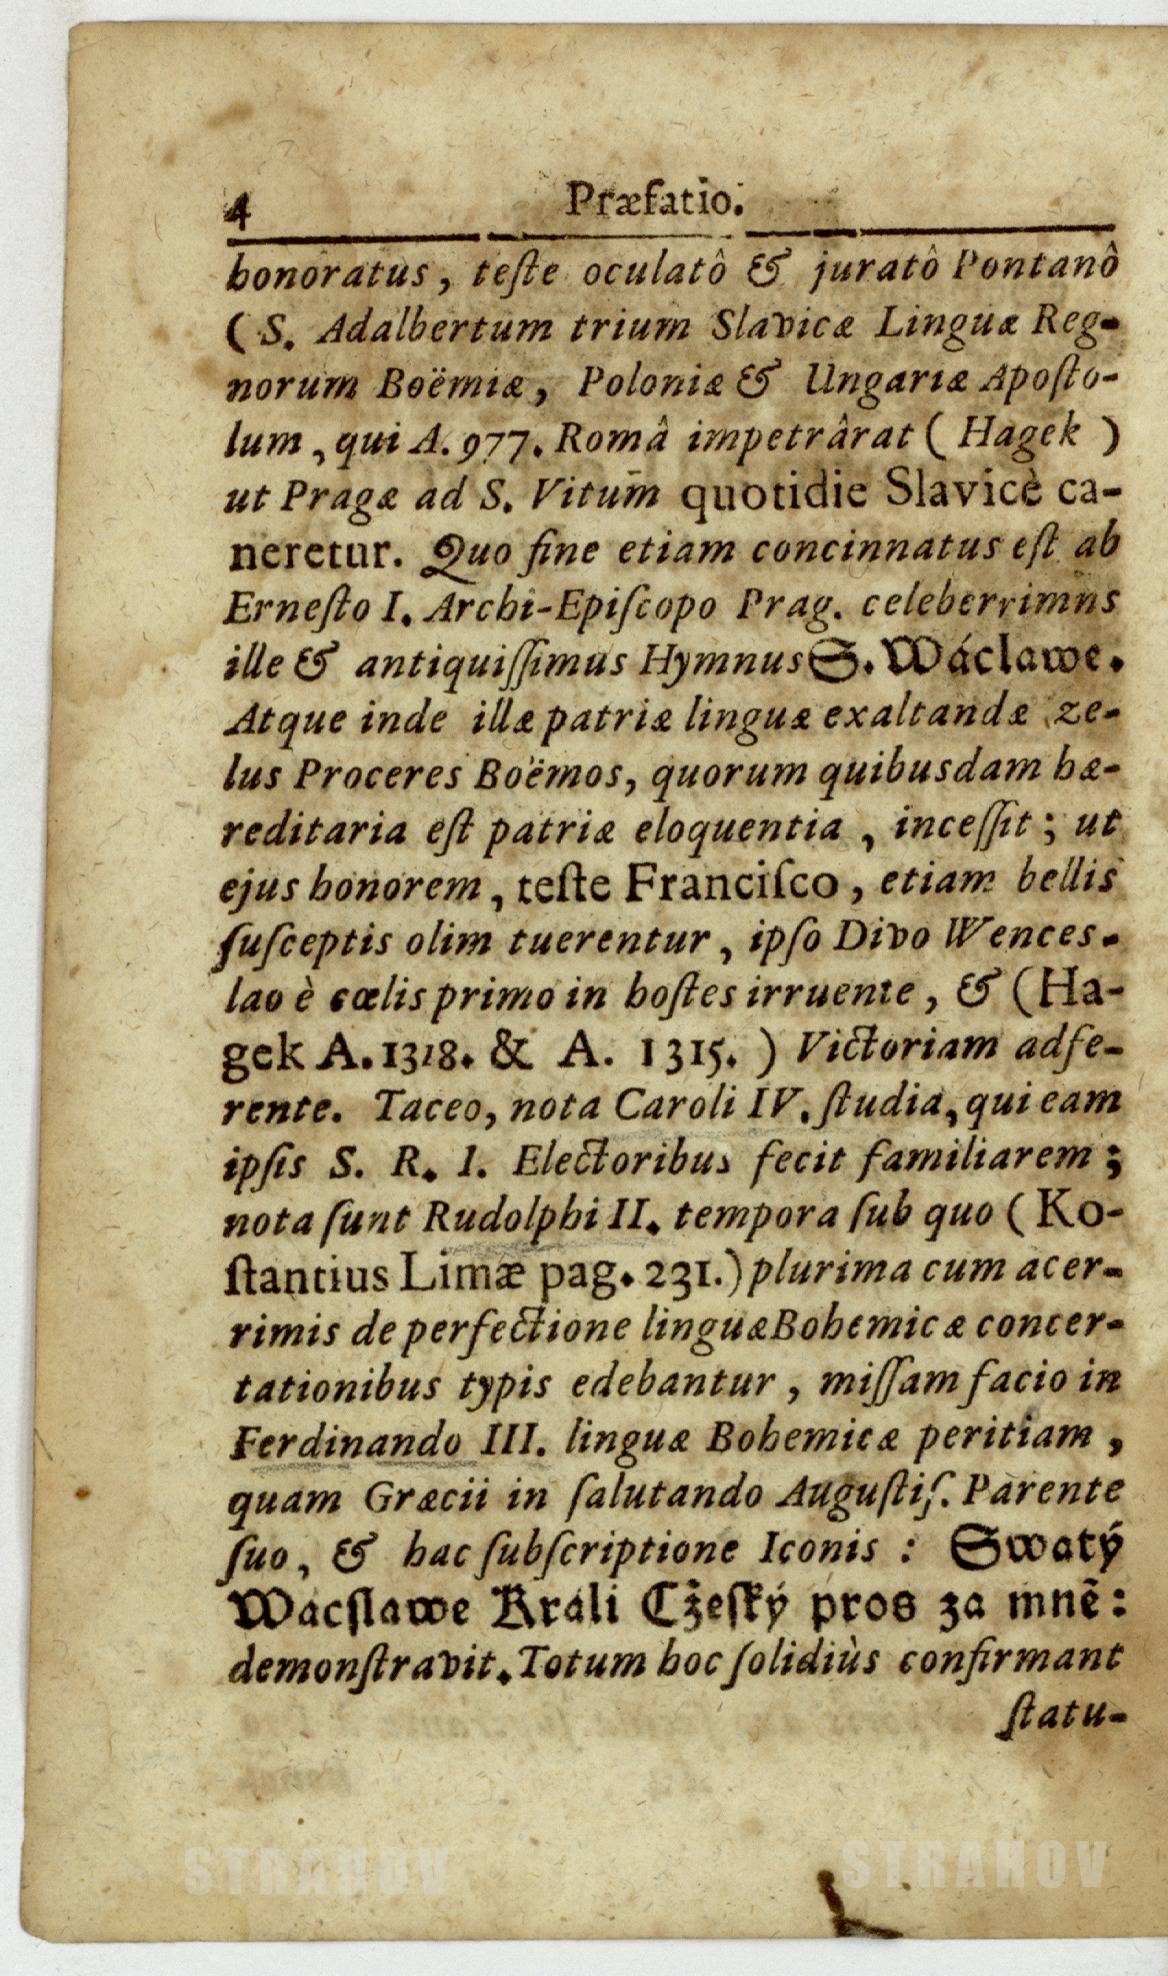 4 Præfatio.
honoratus, teſte oculatô & juratô Pontanô
( S. Adalbertum trium Slavicæ Linguæ Reg-
norum Boëmiæ, Poloniæ & Ungariæ Apoſto-
lum, qui A. 977. Româ impetrârat ( Hagek )
ut Pragæ ad S. Vitum̄ quotidie Slavicè ca-
neretur. Quo fine etiam concinnatus eſt ab
Erneſto I. Archi-Epiſcopo Prag. celeberrimns
ille & antiquiſſimus Hymnus S. Wáclawe.
Atque inde illæ patriæ linguæ exaltandæ ze-
lus Proceres Boëmos, quorum quibusdam hæ-
reditaria eſt patriæ eloquentia, inceſſit; ut
ejus honorem, teſte Franciſco, etiam bellis
ſuſceptis olim tuerentur, ipſo Divo Wences-
lao è cœlis primo in hoſtes irruente, & (Ha-
gek A. 1318. & A. 1315. ) Victoriam adfe-
rente. Taceo, nota Caroli IV. ſtudia, qui eam
ipſis S. R. I. Electoribus fecit familiarem;
nota ſunt Rudolphi II. tempora ſub quo ( Ko-
ſtantius Limæ pag. 231.) plurima cum acer-
rimis de perfectione linguæ Bohemicæ concer-
tationibus typis edebantur, miſſam facio in
Ferdinando III. linguæ Bohemicæ peritiam,
quam Græcii in ſalutando Auguſtiſ. Parente
ſuo, & hac ſubſcriptione Iconis : Swatý
Wacſlawe Králi Cžeſký pros za mnē:
demonſtravit. Totum hoc ſolidiùs confirmant
ſtatu-
STRAHOV STRAHOV